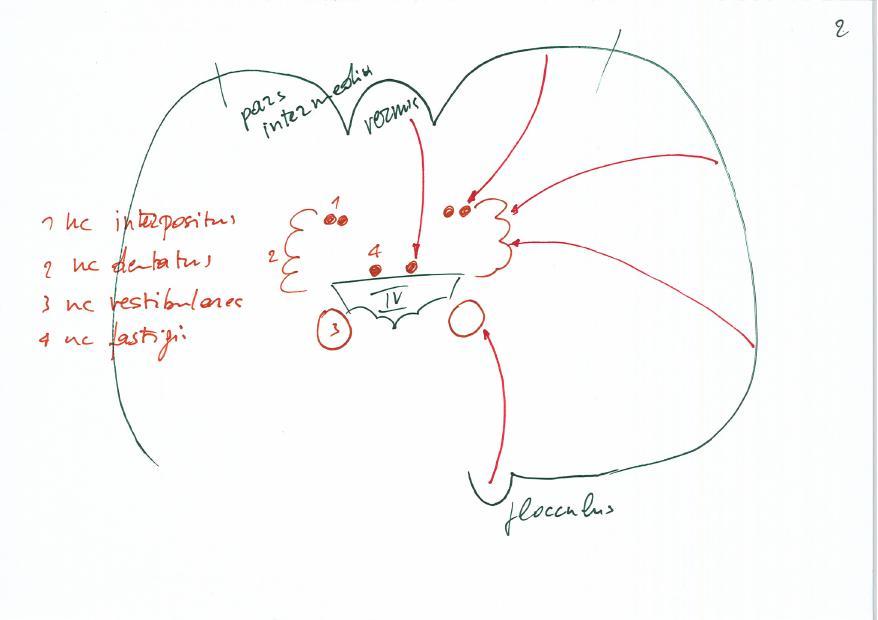 2
pars
intermedia
vermis
1
1 nc interpositus
2
4
2 nc dentatus
IV
3 nc vestibulares
3
4 nc fastigii
flocculus